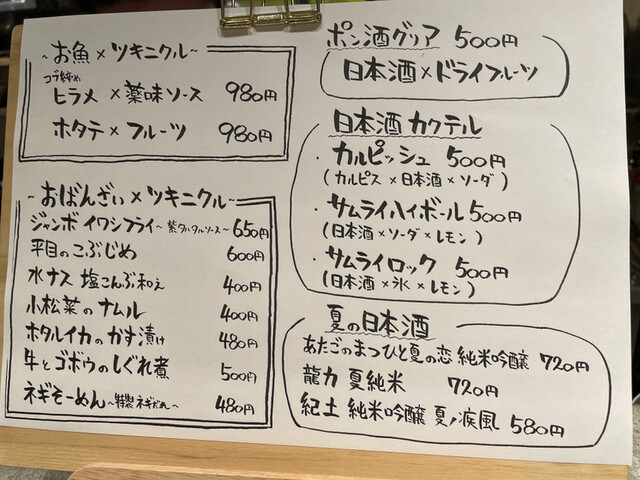 ~お魚×ツキニクル~
コブ締め
ヒラメ×薬味ソース 980円
ホタテ×フルーツ 980円
~おばんざい×ツキニクル~
ジャンボイワシフライ~紫タルタルソース~ 650円
平目のこぶじめ 600円
水ナス 塩こんぶ和え 400円
小松菜のナムル 400円
ホタルイカのかす漬け 480円
牛とゴボウのしぐれ煮 500円
ネギそーめん~特製ネギだれ~ 480円
ポン酒グリア 500円
日本酒×ドライフルーツ
日本酒カクテル
・カルピッシュ 500円
(カルピス×日本酒×ソーダ)
・サムライハイボール 500円
(日本酒×ソーダ×レモン)
・サムライロック 500円
(日本酒×氷×レモン)
夏の日本酒
あたごのまつひと夏の恋 純米吟醸 720円
龍力 夏純米 720円
紀土 純米吟醸 夏ノ疾風 580円